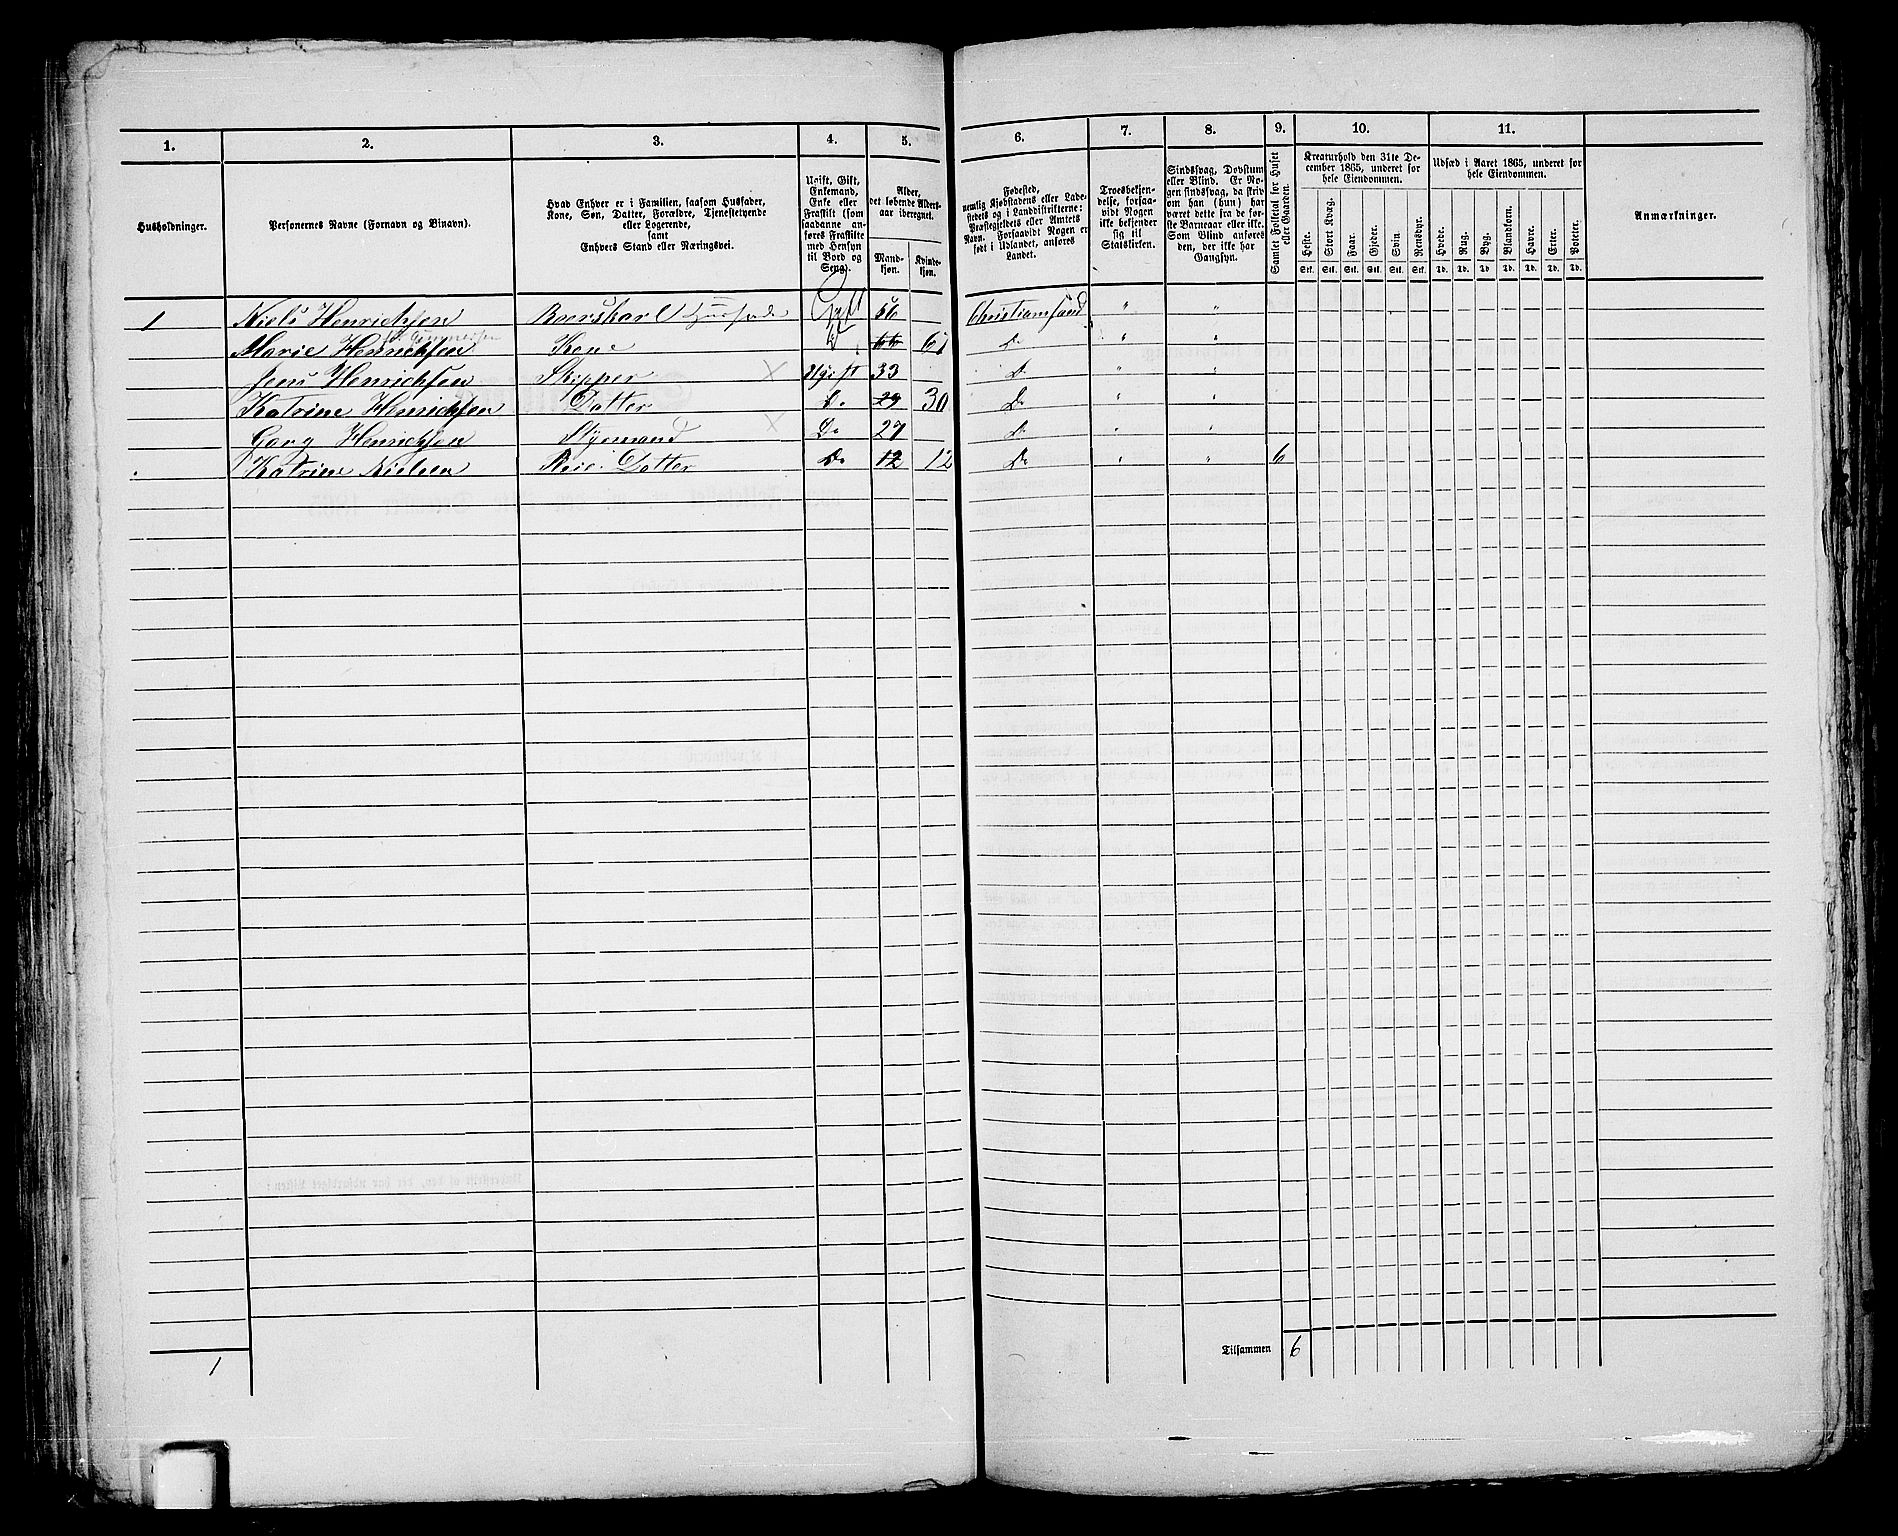 1. 2. 3. 4. 5. 6. 7. 8. 9. 10. 11.
Husholdninger.
Personernes Navne (Fornavn og Binavn).
Hvad Enhver er i Familien, saasom Husfader,
Kone, Søn, Datter, Forældre, Tjenestetyende
eller Logerende,
samt
Enhvers Stand eller Næringsvei.
Ugift, Gift,
Enkemand,
Enke eller
Fraskilt (som
saadanne an-
føres Fraskilte
med Hensyn
til Bord og
Seng).
Alder,
det løbende Alders-
aar iberegnet.
Mand-
kjøn.
Kvinde-
kjøn.
Fødested,
nemlig Kjøbstadens eller Lade-
stedets og i Landdistrikterne:
Præstegjeldets eller Amtets
Navn. Forsaavidt Nogen er
født i Udlandet, anføres
Landet.
Troesbekjen-
delse, forsaa-
vidt Nogen
ikke bekjender
sig til
Statskirken.
Sindssvag, Døvstum
eller Blind. Er No-
gen sindssvag, da skriv
om han (hun) har
været dette fra de før-
ste Barneaar eller ikke.
Som Blind anføres
den, der ikke har
Gangsyn.
Samlet Folketal for Huset
eller Gaarden.
Kreaturhold den 31te De-
cember 1865, underet for
hele Eiendommen.
Heste. Stort Kvæg. Faar. Gjeder. Svin. Rensdyr.
Stk. Stk. Stk. Stk. Stk. Stk.
Udsæd i Aaret 1865, underet for
hele Eiendommen.
Hvede. Rug. Byg. Blandkorn. Havre. Erter. Poteter.
Td. Td. Td. Td. Td. Td. Td.
Anmærkninger.
1 Niels Henrichsen Gift 66 Christiansand " "
Marie Henrichsen Kone 61 Do " "
Jens Henrichsen Skipper × Ugift 33 Do " "
Katrine Henrichsen Datter Do 29 30 Do " "
Georg Henrichsen Styrmand × Do 27 Do " "
Katrine Nielsen Datter Do 12 12 Do " " 6
1
Tilsammen 6